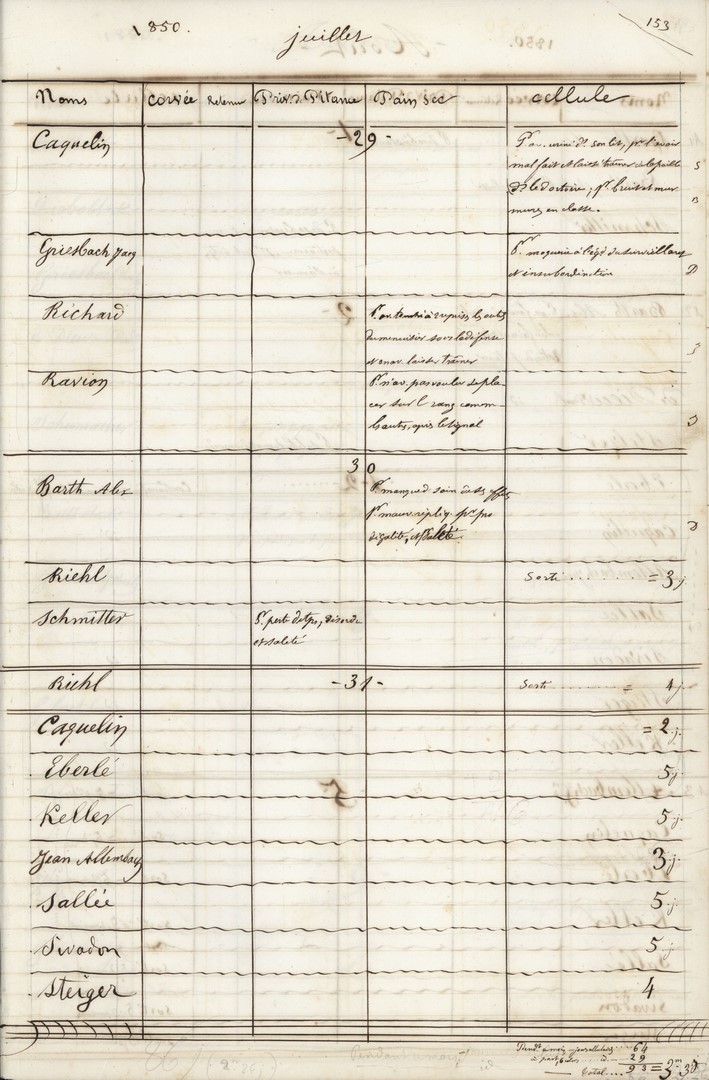 1850.
juillet
153
Noms Corvée Retenue Priv. d. Pitance Pain sec cellule
- 29 -
Caquelin
Pr av. uriné ds son lit, pr l'avoir
mal fait et laissé traîner de la paille
ds le dortoire; pr bruit et mur
mures en classe.
Griesbach Jacq
Pr moquerie à l'égd du surveillant
et insubordination
Richard
Pr av. touché à reprises
du menuisier sous la défense
et en av. laissé traîner
Ravion
Pr n'av. pas voulu se pla-
cer sur l rang comm
après le signal
30
Barth Alex
Pr manque d. soin de ses effets
Pr mauv. répliq.
et saleté.
Riehl
Sorti .... = 3 j
Schmitter
Pr perte d. tps, désordre
et saleté
Riehl - 31 - Sorti = 4 j
Caquelin = 2 j.
Eberlé 5 j
Keller 5 j.
Jean Allembay 3 j.
Sallée 5 j.
Sivadon 5 j.
Steiger 4
64
29
total... 93 = 3m 3d